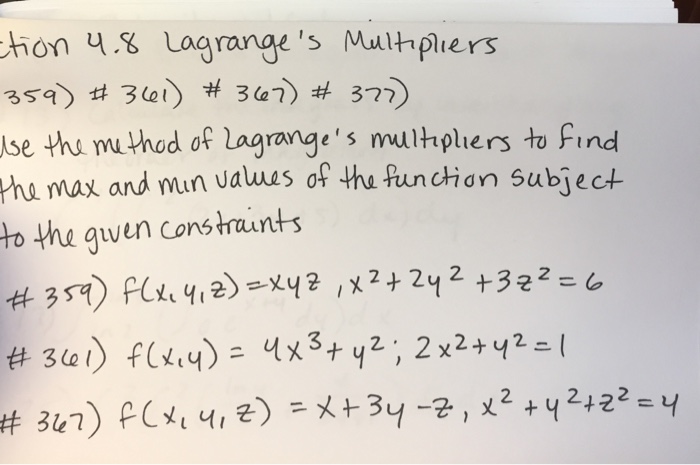 ction 4.8 Lagrange's Multipliers
359) # 361) # 367) # 377)
Use the method of Lagrange's multipliers to find
the max and min values of the function subject
to the given constraints
# 359) f(x,y,z)=xyz, x²+2y²+3z²=6
# 361) f(x,y) = 4x³+y²; 2x²+y²=1
# 367) f(x,y,z) = x+3y-z, x²+y²+z²=4